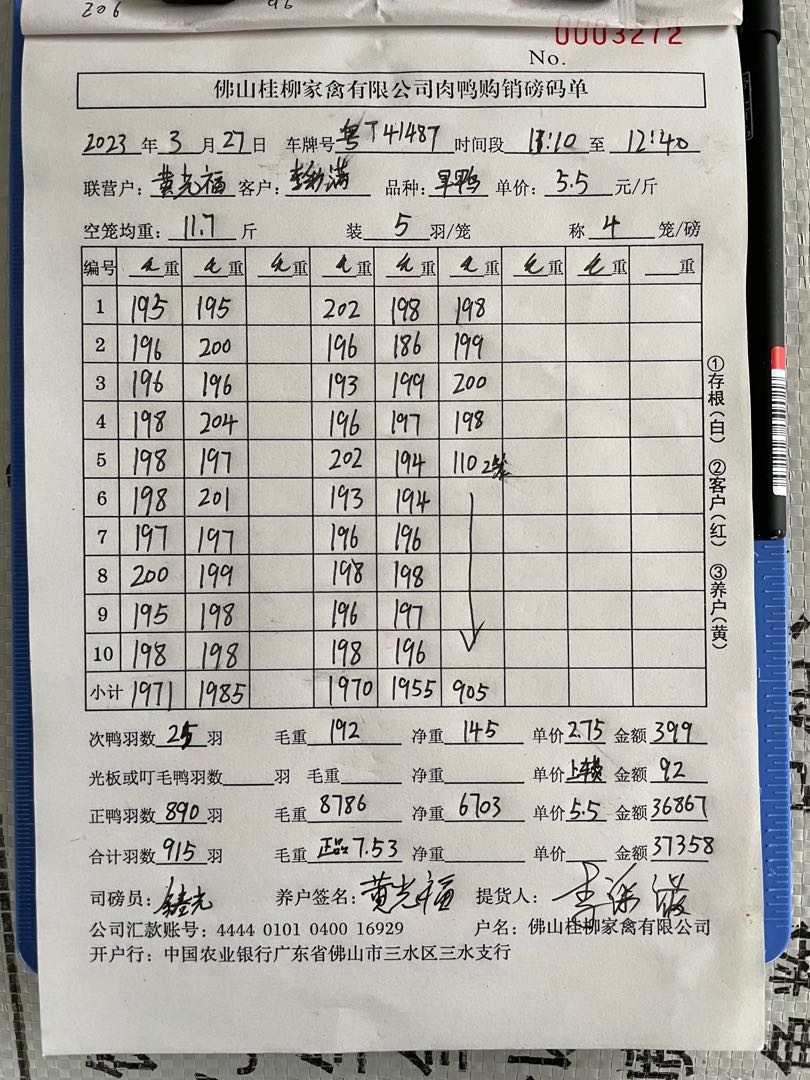 206 96
0003272
No.
佛山桂柳家禽有限公司肉鸭购销磅码单
2023 年 3 月 27 日 车牌号 粤T41487 时间段 11:10 至 12:40
联营户: 黄光福 客户: 李彩满 品种: 旱鸭 单价: 5.5 元/斤
空笼均重: 11.7 斤 装 5 羽/笼 称 4 笼/磅
编号 重 重 重 重 重 重 重 重 重
1 195 195 202 198 198
2 196 200 196 186 199
3 196 196 193 199 200
4 198 204 196 197 198
5 198 197 202 194 110 2笼
6 198 201 193 194
7 197 197 196 196
8 200 199 198 198
9 195 198 196 197
10 198 198 198 196
小计 1971 1985 1970 1955 905
①存根(白) ②客户(红) ③养户(黄)
次鸭羽数 25 羽 毛重 192 净重 145 单价 2.75 金额 399
光板或叮毛鸭羽数 羽 毛重 净重 单价 上车费 金额 92
正鸭羽数 890 羽 毛重 8786 净重 6703 单价 5.5 金额 36867
合计羽数 915 羽 毛重 正品7.53 净重 单价 金额 37358
司磅员: 养户签名: 黄光福 提货人:
公司汇款账号: 4444 0101 0400 16929 户名: 佛山桂柳家禽有限公司
开户行: 中国农业银行广东省佛山市三水区三水支行